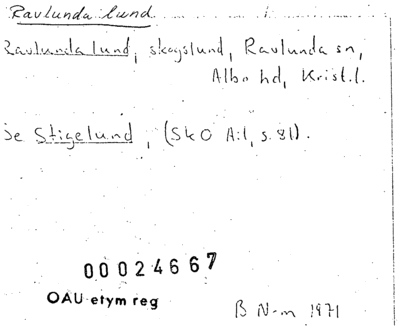 Ravlunda lund
Ravlunda lund, skogslund, Ravlunda sn,
Albo hd, Krist.l.
Se Stigelund, (SkO A:1, s. 81).
00024667
OAU etym reg
B N-m 1971